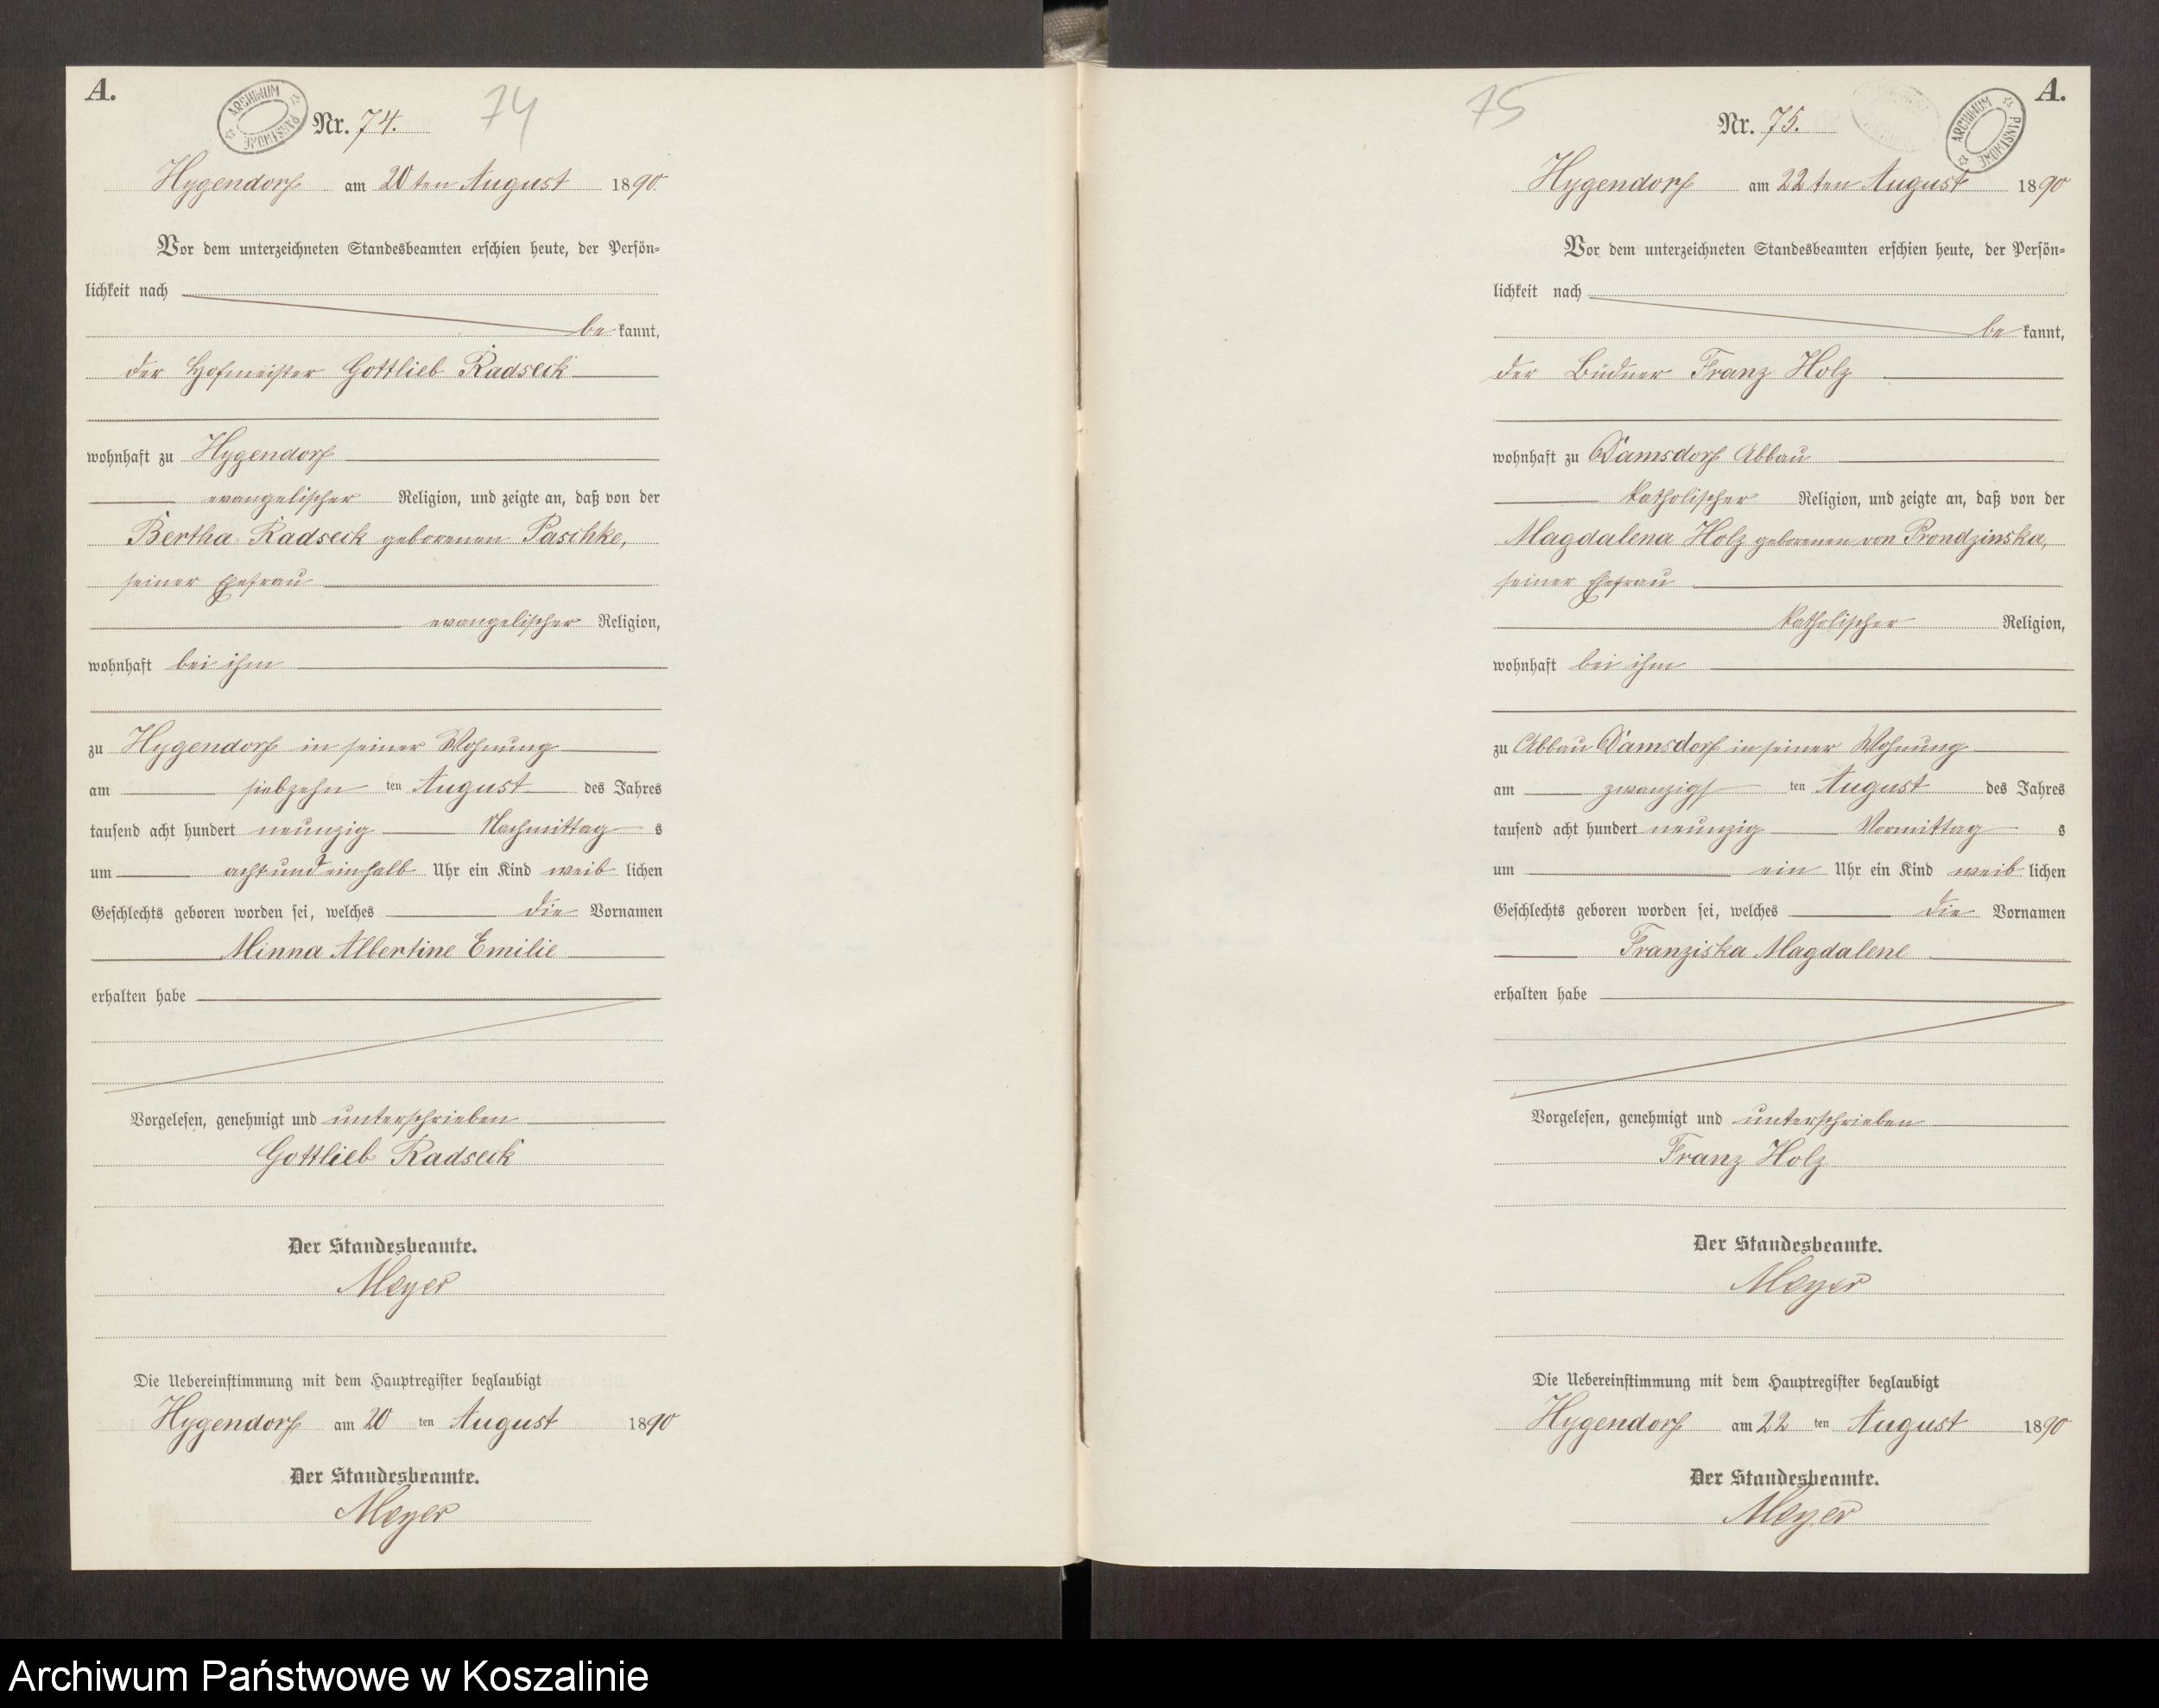 A.
ARCHIWUM PAŃSTWOWE
Nr. 74.
74
Hygendorf am 20ten August 1890.
Vor dem unterzeichneten Standesbeamten erschien heute, der Persön-
lichkeit nach
be kannt,
der Hofmeister Gottlieb Radseck
wohnhaft zu Hygendorf
evangelischer Religion, und zeigte an, daß von der
Bertha Radseck geborenen Paschke,
seiner Ehefrau
evangelischer Religion,
wohnhaft bei ihm
zu Hygendorf in seiner Wohnung
am siebzehn ten August des Jahres
tausend acht hundert neunzig Nachmittag s
um acht und einhalb Uhr ein Kind weib lichen
Geschlechts geboren worden sei, welches die Vornamen
Minna Albertine Emilie
erhalten habe
Vorgelesen, genehmigt und unterschrieben
Gottlieb Radseck
Der Standesbeamte.
Meyer
Die Uebereinstimmung mit dem Hauptregister beglaubigt
Hygendorf am 20 ten August 1890
Der Standesbeamte.
Meyer
75
A.
Nr. 75.
ARCHIWUM PAŃSTWOWE
Hygendorf am 22ten August 1890
Vor dem unterzeichneten Standesbeamten erschien heute, der Persön-
lichkeit nach
be kannt,
der Büdner Franz Holz
wohnhaft zu Damsdorf Abbau
katholischer Religion, und zeigte an, daß von der
Magdalena Holz geborenen von Prondzinska,
seiner Ehefrau
katholischer Religion,
wohnhaft bei ihm
zu Abbau Damsdorf in seiner Wohnung
am zwanzigs ten August des Jahres
tausend acht hundert neunzig Vormittag s
um ein Uhr ein Kind weib lichen
Geschlechts geboren worden sei, welches die Vornamen
Franziska Magdalene
erhalten habe
Vorgelesen, genehmigt und unterschrieben
Franz Holz
Der Standesbeamte.
Meyer
Die Uebereinstimmung mit dem Hauptregister beglaubigt
Hygendorf am 22 ten August 1890
Der Standesbeamte.
Meyer
Archiwum Państwowe w Koszalinie